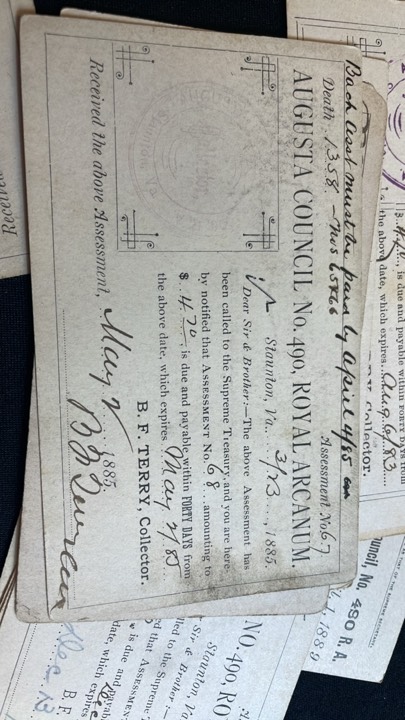 Back Asst must be paid by April 4/85 on
Death 1358 – Nos 65 & 66 Assessment No. 67
AUGUSTA COUNCIL No. 490, ROYAL ARCANUM.
Staunton, Va. 3/23 1885.
Dear Sir & Brother:—The above Assessment has
been called to the Supreme Treasury, and you are here-
by notified that ASSESSMENT No. 68 amounting to
$ 4.70, is due and payable within FORTY DAYS from
the above date, which expires May 2/85
B. F. TERRY, Collector.
Received the above Assessment, May 2 1885.
Received
is due and payable within FORTY DAYS from
the above date, which expires Aug 6/83
Collector.
uncil, No. 490 R. A.
1889
NO. 490, RO
Staunton, Va
Sir & Brother:—
lled to the Supreme
d that ASSESSMENT
is due and payable
date, which expires
B. F.
Dec 13